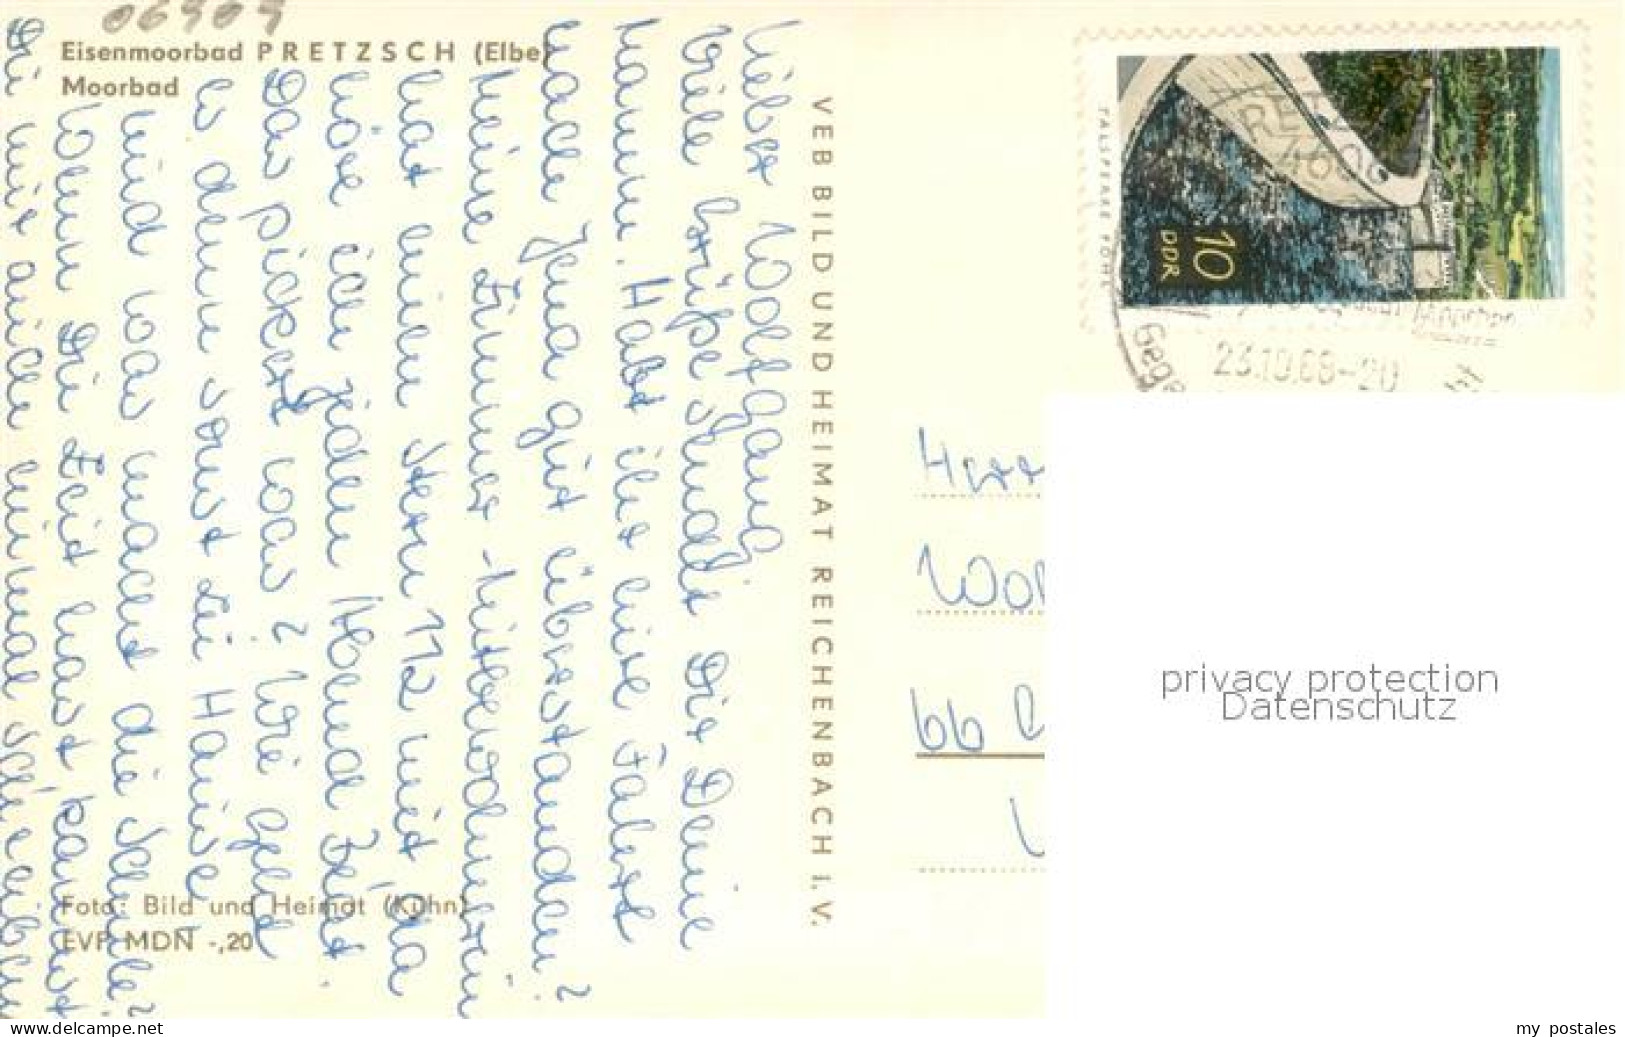 06909
Eisenmoorbad PRETZSCH (Elbe)
Moorbad
Lieber Wolfgang!
Viele Grüße sendet Dir Deine
Mammi. Habt ihr eure Fahrt
nach Jena gut überstanden?
Meine Zimmer-Mitbewohnerin
hat einen Stern 112 mit, da
höre ich jeden Abend Zeit.
Das picket was? Wie geht
es denn sonst zu Hause
und was macht die Schule?
Wenn Du Zeit hast kannst
Du mir auch einmal schreiben
Foto: Bild und Heimat (Kühn)
EVP MDN -,20
VEB BILD UND HEIMAT REICHENBACH I. V.
TALSPERRE PÖHL
10
DDR
23.10.68-20
Herr
66
privacy protection
Datenschutz
www.delcampe.net
my_postales